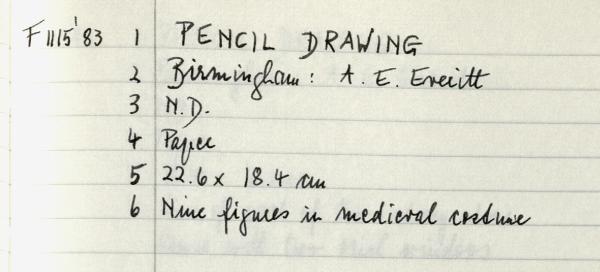 F1115'83 1 PENCIL DRAWING
2 Birmingham: A. E. Everitt
3 N.D.
4 Paper
5 22.6 x 18.4 cm
6 Nine figures in medieval costume